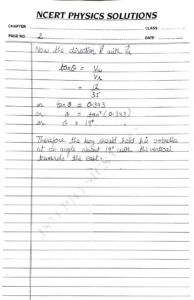 NCERT PHYSICS SOLUTIONS
CHAPTER
CLASS
PAGE NO. 2
DATE
Now the direction R with Vr
tanθ = Vw
Vr
= 12
35
or tanθ = 0.343
or θ = tan⁻¹(0.343)
or θ = 19°
Therefore the boy should hold his umbrella
at an angle about 19° with the vertical
towards the east.